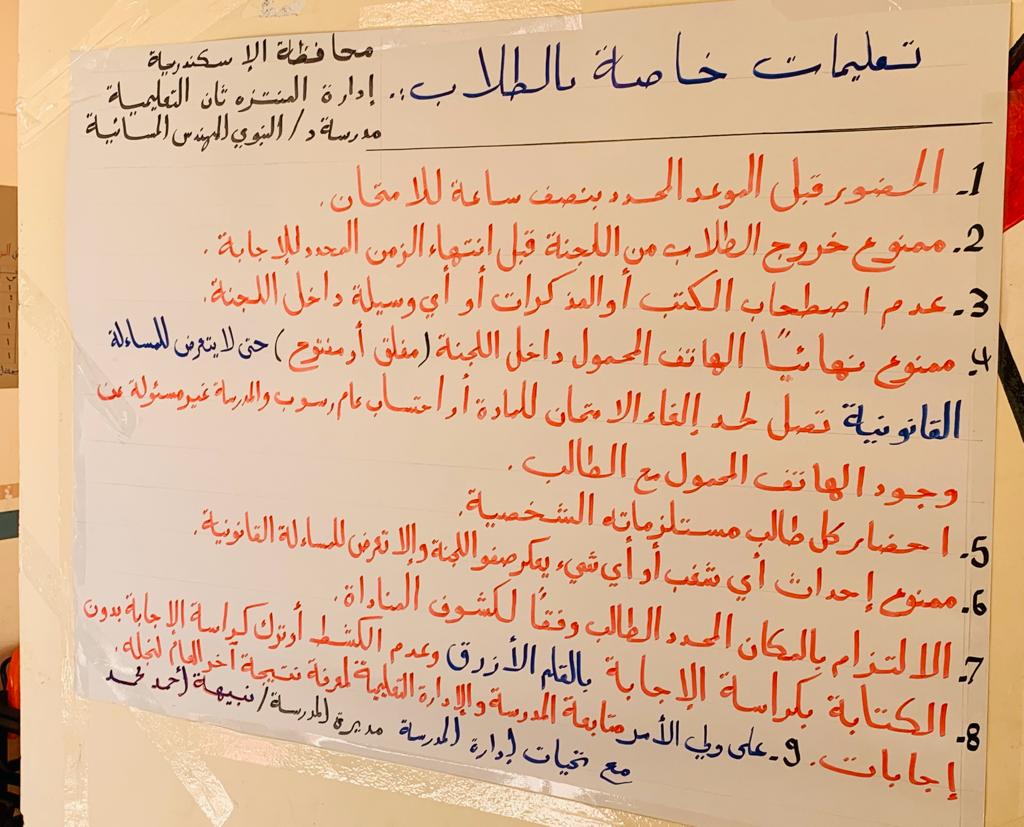 محافظة الإسكندرية
إدارة المنتزه ثان التعليمية
مدرسة د/ النبوي المهندس المسائية
تعليمات خاصة بالطلاب:.
1- الحضور قبل الموعد المحدد بنصف ساعة للامتحان.
2- ممنوع خروج الطلاب من اللجنة قبل انتهاء الزمن المحدد للإجابة.
3- عدم اصطحاب الكتب أو المذكرات أو أي وسيلة داخل اللجنة.
4- ممنوع نهائيًا الهاتف المحمول داخل اللجنة (مغلق أو مفتوح) حتى لا يتعرض للمساءلة
القانونية تصل لحد إلغاء الامتحان للمادة أو احتساب عام رسوب والمدرسة غير مسئولة عن
وجود الهاتف المحمول مع الطالب.
5- احضار كل طالب مستلزماته الشخصية.
6- ممنوع إحداث أي شغب أو أي شيء يعكر صفو اللجنة وإلا تعرض للمساءلة القانونية.
7- الالتزام بالمكان المحدد للطالب وفقًا لكشوف المناداة.
8- الكتابة بكراسة الإجابة بالقلم الأزرق وعدم الكشط أو ترك كراسة الإجابة بدون
إجابات. 9- على ولي الأمر متابعة المدرسة والإدارة التعليمية لمعرفة نتيجة آخر العام لنجله.
مع تحيات إدارة المدرسة مديرة المدرسة/ نبيهة أحمد محمد